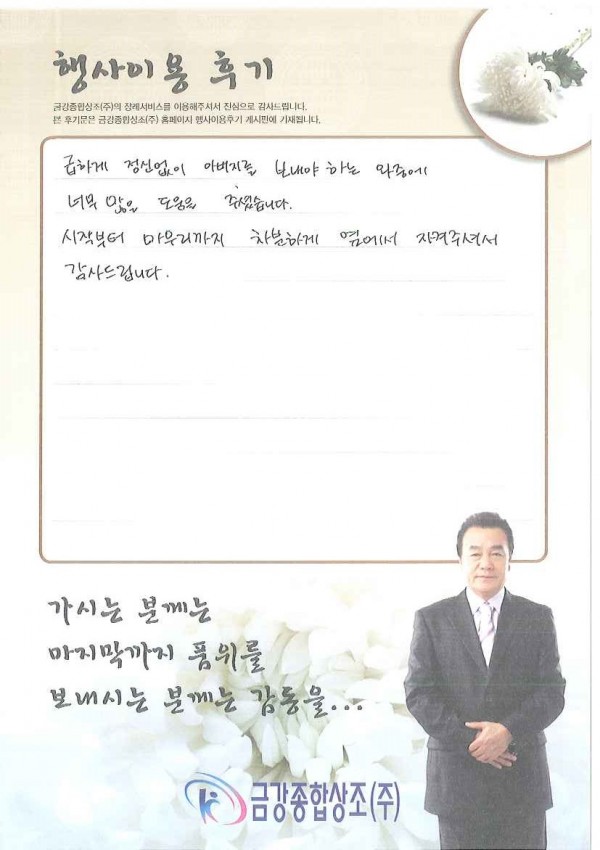 행사이용 후기
금강종합상조(주)의 장례서비스를 이용해주셔서 진심으로 감사드립니다.
본 후기문은 금강종합상조(주) 홈페이지 행사이용후기 게시판에 기재됩니다.
급하게 정신없이 아버지를 보내야 하는 와중에
너무 많은 도움을 주셨습니다.
시작부터 마무리까지 차분하게 옆에서 지켜주셔서
감사드립니다.
가시는 분께는
마지막까지 품위를
보내시는 분께는 감동을...
금강종합상조(주)